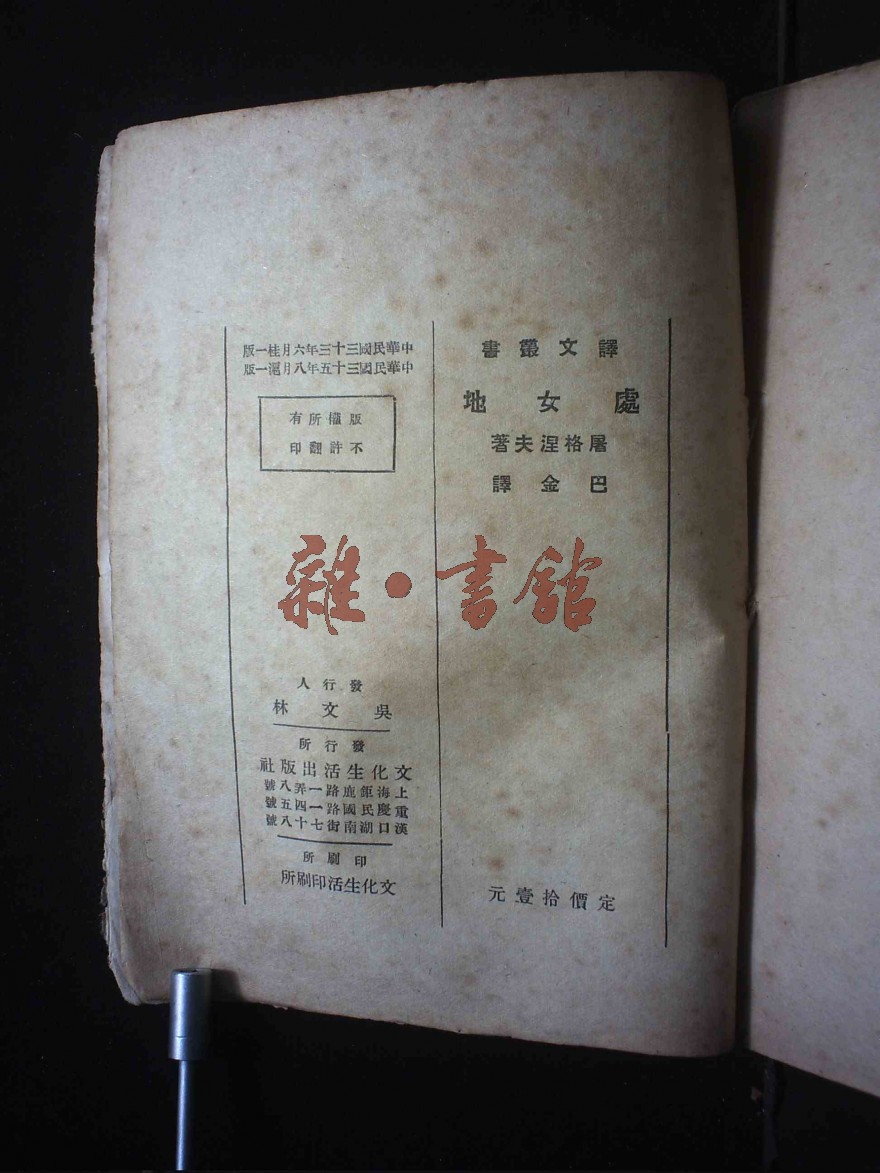 譯文叢書
處女地
屠格涅夫著
巴金譯
定價拾壹元
中華民國三十三年六月桂一版
中華民國三十五年八月滬一版
版權所有
不許翻印
雜·書館
發行人
吳文林
發行所
文化生活出版社
上海鉅鹿路一弄八號
重慶民國路一四五號
漢口湖南街七十八號
印刷所
文化生活印刷所